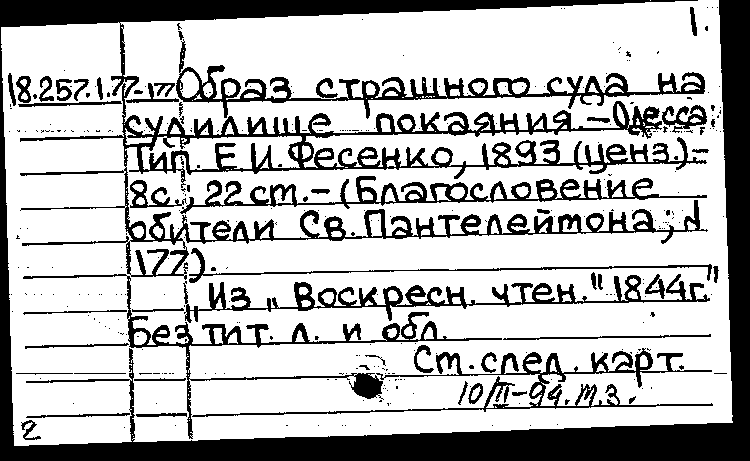 1.
18.257.1.77-177 Образ страшного суда на
судилище покаяния. - Одесса:
Тип. Е.И. Фесенко, 1893 (ценз.).-
8с.; 22 ст. - (Благословение
обители Св. Пантелеймона; №
177).
Из „Воскресн. чтен." 1844г."
Без тит. л. и обл.
См. след. карт.
10/II-94. т.з.
2